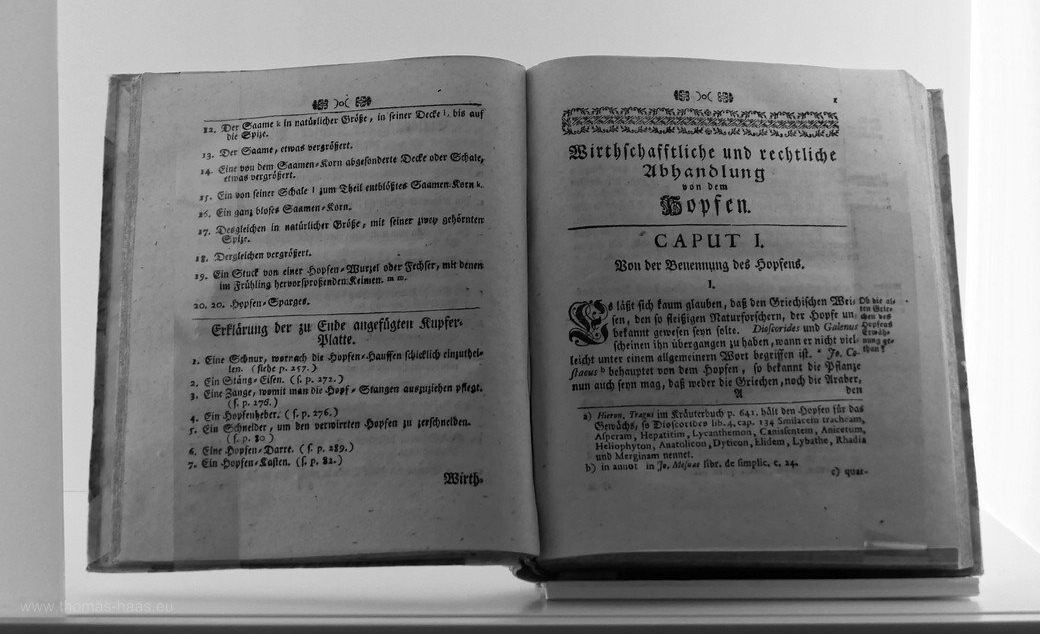 12. Der Saame k in natürlicher Größe, in seiner Decke l. bis auf
die Spize.
13. Der Saame, etwas vergrößert.
14. Eine von dem Saamen-Korn abgesonderte Decke oder Schale,
etwas vergrößert.
15. Ein von seiner Schale l zum Theil entblößtes Saamen-Korn k.
16. Ein ganz bloses Saamen-Korn.
17. Desgleichen in natürlicher Größe, mit seiner zwey gehörnten
Spize.
18. Dergleichen vergrößert.
19. Ein Stuck von einer Hopfen-Wurzel oder Fechser, mit denen
im Frühling hervorsproßenden Keimen. m m.
20. 20. Hopfen-Sparges.
Erklärung der zu Ende angefügten Kupfer-
Platte.
1. Eine Schnur, wornach die Hopfen-Hauffen schicklich einzuthei-
len. (siehe p. 257.)
2. Ein Stäng-Eisen. (s. p. 272.)
3. Eine Zange, womit man die Hopf-Stangen auszuziehen pflegt.
(s. p. 276.)
4. Ein Hopfenheber. (s. p. 276.)
5. Ein Schneider, um den verwirrten Hopfen zu zerschneiden.
(s. p. 80)
6. Eine Hopfen-Darre. (s. p. 289.)
7. Ein Hopfen-Kasten. (s. p. 82.)
Wirth-
1
Wirthschafftliche und rechtliche
Abhandlung
von dem
Hopfen.
CAPUT I.
Von der Benennung des Hopfens.
I.
Es läßt sich kaum glauben, daß den Griechischen Wei-
sen, den so fleißigen Naturforschern, der Hopfe un-
bekannt gewesen seyn solte. Dioscorides und Galenus
scheinen ihn übergangen zu haben, wann er nicht viel-
leicht unter einem allgemeinern Wort begriffen ist. a Jo. Co-
staeus b behauptet von dem Hopfen, so bekannt die Pflanze
nun auch seyn mag, daß weder die Griechen, noch die Araber,
A den
Ob die al-
ten Grie-
chen des
Hopfens
Erwäh-
nung ge-
than?
a) Hieron. Tragus im Kräuterbuch p. 641. hält den Hopfen für das
Gewächs, so Dioscorides lib. 4. cap. 134 Smilacem tracheam,
Asperam, Hepatitim, Lycanthemon, Canisentem, Anicetum,
Heliophyton, Anatolicon, Dyticon, Elidem, Lybathe, Rhadia
und Merginam nennet.
b) in annot in Jo. Mesuae libr. de simplic. c. 24.
c) quat-
www.thomas-haas.eu